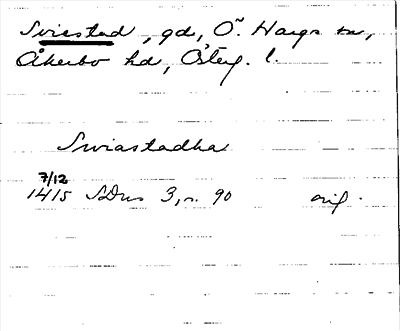 Sviestad, gd, Ö. Hargs sn,
Åkerbo hd, Österg. l.
Swiastadha
7/12
1415 SDns 3, s. 90 orig.